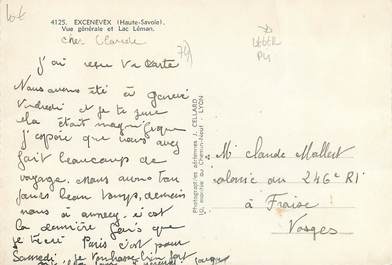 4125. EXCENEVEX (Haute-Savoie).
Vue générale et Lac Léman.
cher Claude
74
j'ai reçu ta carte
Nous avons été à Genève
Vendredi et je te jure
cela était magnifique
j'espère que vous avez
fait beaucoup de
voyage. Nous avons tou
jours beau temps, demain
nous à annecy. c'est
la dernière fois que
je t'écris Paris c'est pour
Samedi. je
Photographies aériennes J. CELLARD
10, montée du Chemin-Neuf - LYON
Mr Claude Mallert
colonie du 246e RI
à Fraize
Vosges